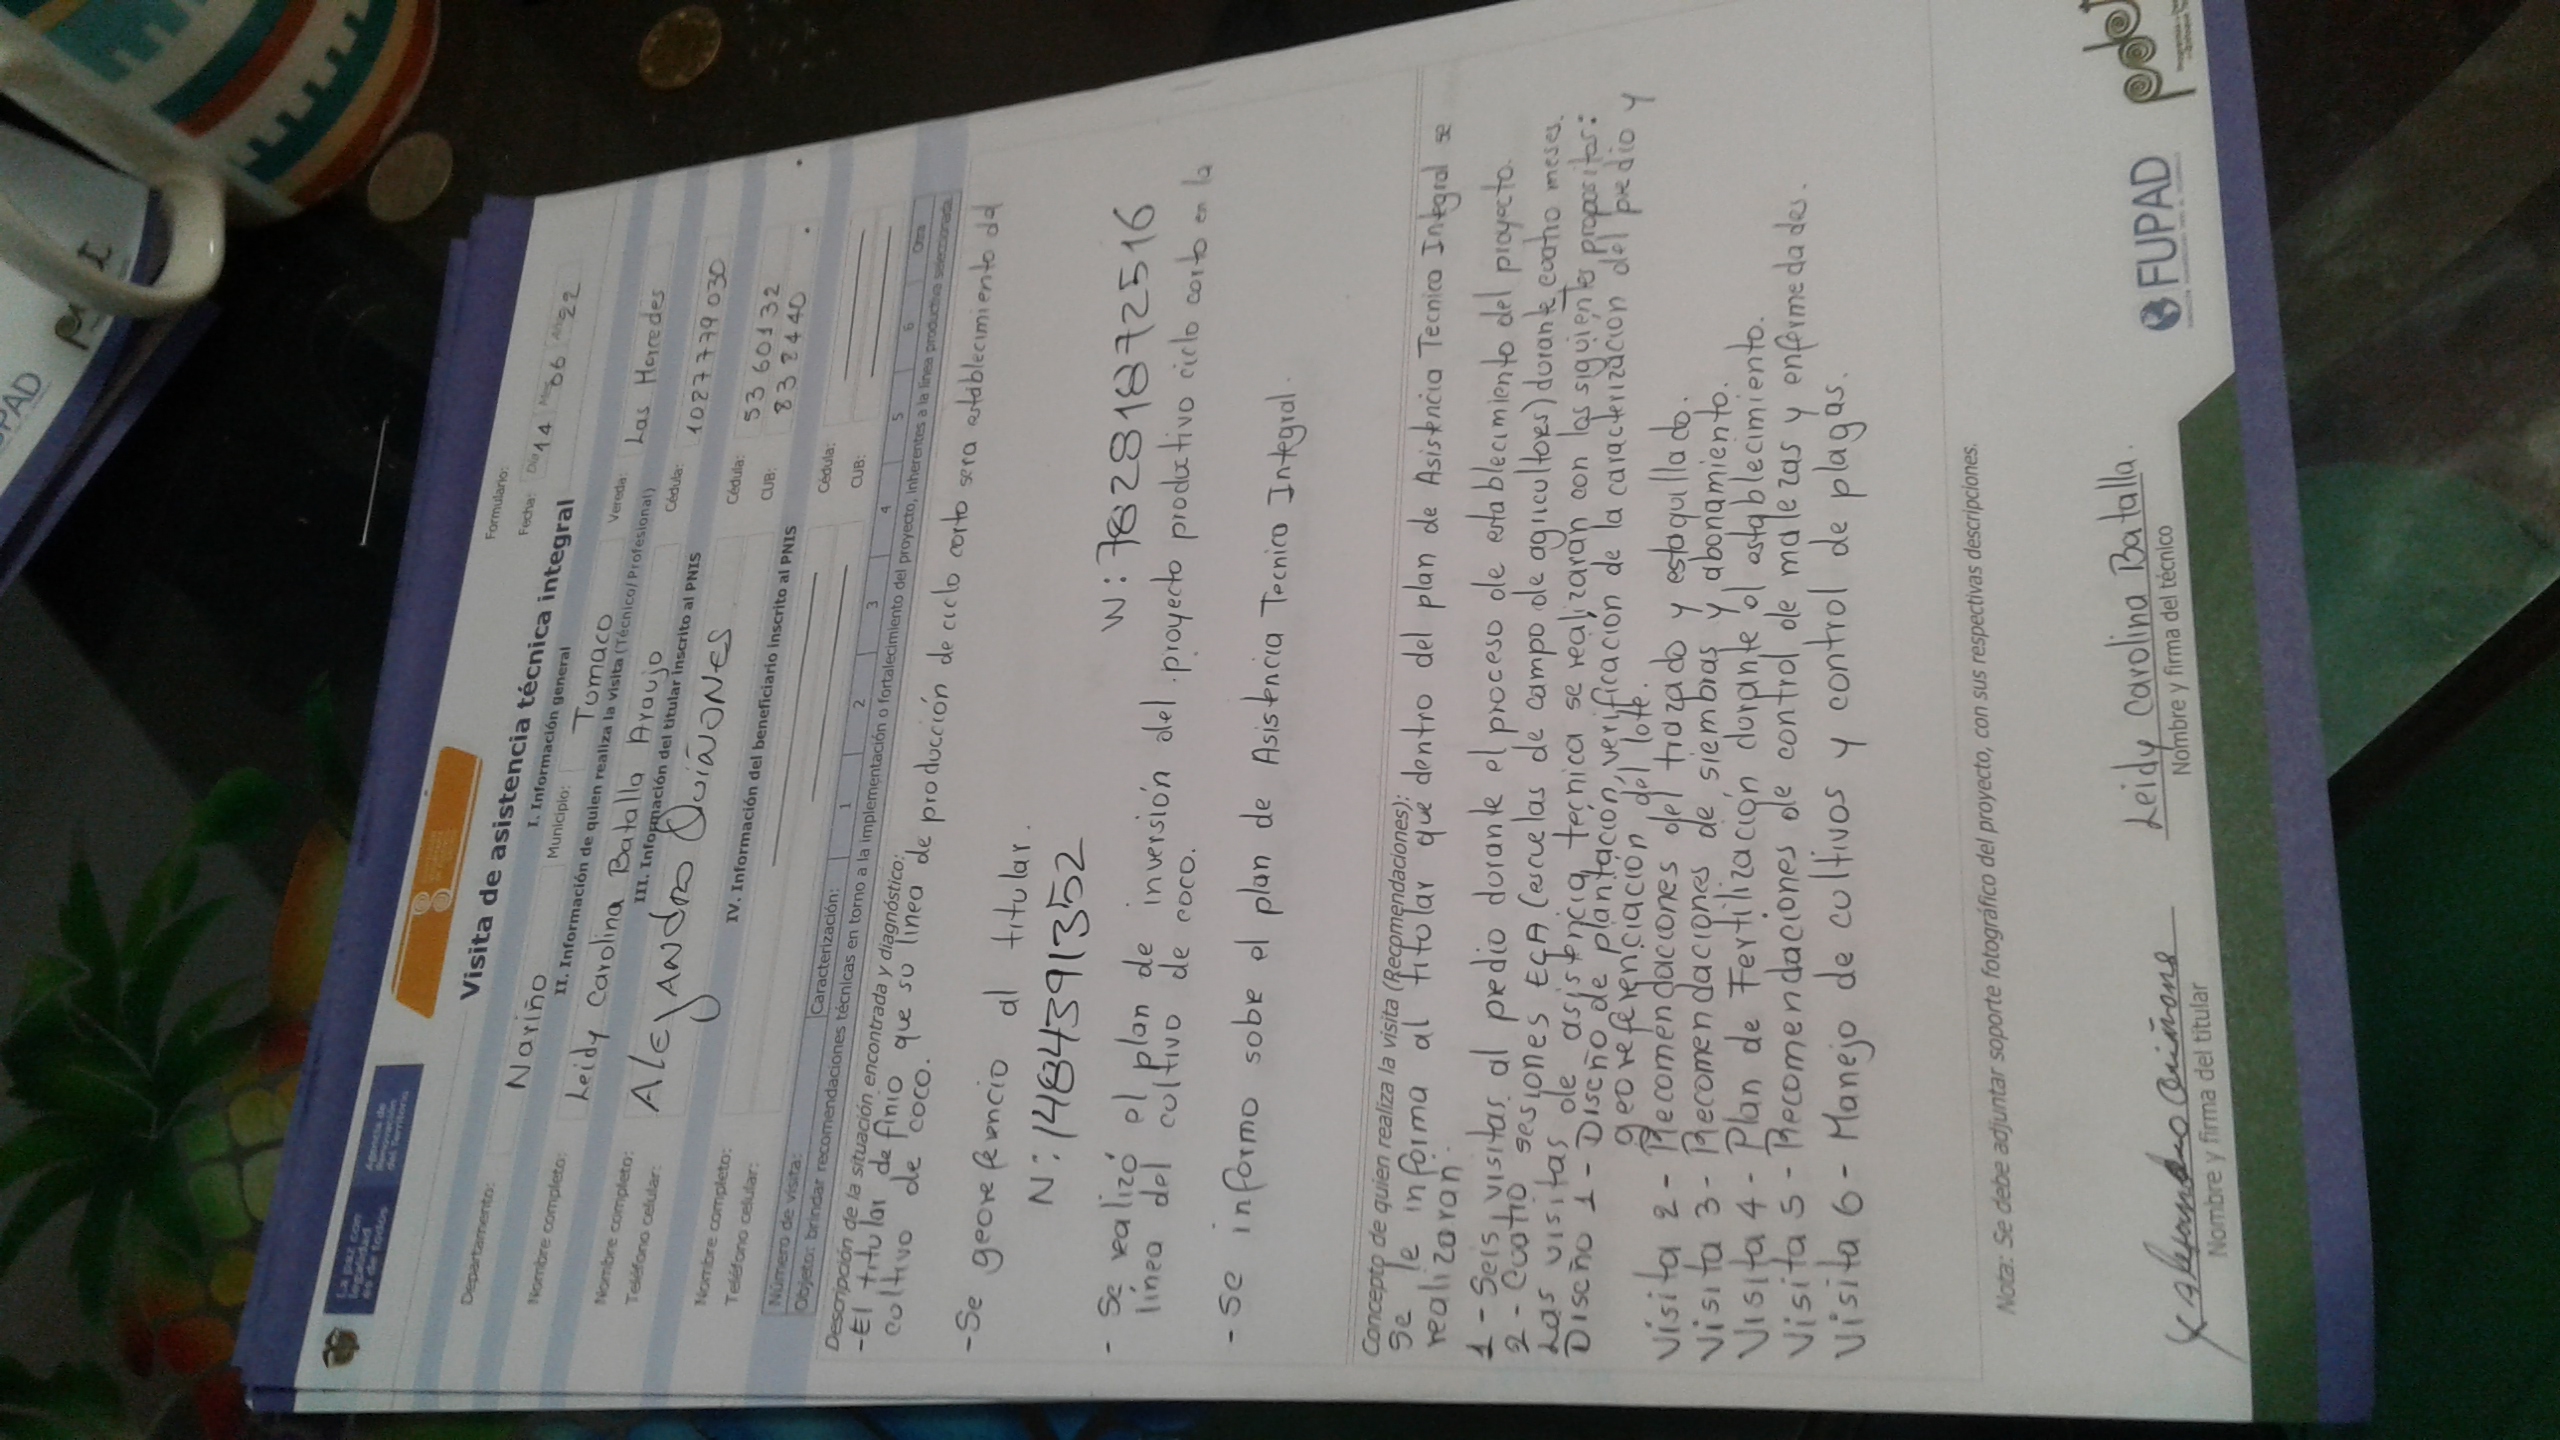 La paz con
legalidad
es de todos
Agencia de
Renovación
del Territorio
Visita de asistencia técnica integral
Formulario:
Fecha: Día 14 Mes 06 Año 22
I. Información general
Departamento: Nariño Municipio: Tumaco Vereda: Las Mercedes
II. Información de quien realiza la visita (Técnico/Profesional)
Nombre completo: Leidy Carolina Batalla Araujo Cédula: 1087779030
III. Información del titular inscrito al PNIS
Nombre completo: ALEJANDRO QUIÑONES Cédula: 5360132
Teléfono celular: CUB: 832440
IV. Información del beneficiario inscrito al PNIS
Nombre completo: Cédula:
Teléfono celular: CUB:
Número de visita: Caracterización: 1 2 3 4 5 6 Otra
Objeto: brindar recomendaciones técnicas en torno a la implementación o fortalecimiento del proyecto, inherentes a la línea productiva seleccionada.
Descripción de la situación encontrada y diagnóstico:
-El titular de finio que su linea de producción de ciclo corto sera establecimiento del
cultivo de coco.
-Se georeferencio al titular.
N: 1484391352 W: 78281872516
- Se realizó el plan de inversión del proyecto productivo ciclo corto en la
línea del cultivo de coco.
- Se informo sobre el plan de Asistencia Tecnico Integral.
Concepto de quien realiza la visita (Recomendaciones):
Se le informa al titular que dentro del plan de Asistencia Tecnico Integral se
realizaran
1 - Seis visitas al predio durante el proceso de establecimiento del proyecto.
2 - Cuatro sesiones ECA (escuelas de campo de agricultores) durante cuatro meses.
Las visitas de asistencia técnica se realizaran con los siguientes propositos:
Diseño 1 - Diseño de plantación, verificacion de la caracterización del predio y
georeferenciación del lote.
Visita 2 - Recomendaciones del trazado y estaquillado.
Visita 3 - Recomendaciones de siembras y abonamiento.
Visita 4 - Plan de Fertilización durante el establecimiento.
Visita 5 - Recomendaciones de control de malezas y enfermedades.
Visita 6 - Manejo de cultivos y control de plagas.
Nota: Se debe adjuntar soporte fotográfico del proyecto, con sus respectivas descripciones.
x Alejandro Quiñones Leidy Carolina Batalla.
Nombre y firma del titular Nombre y firma del técnico
FUPAD